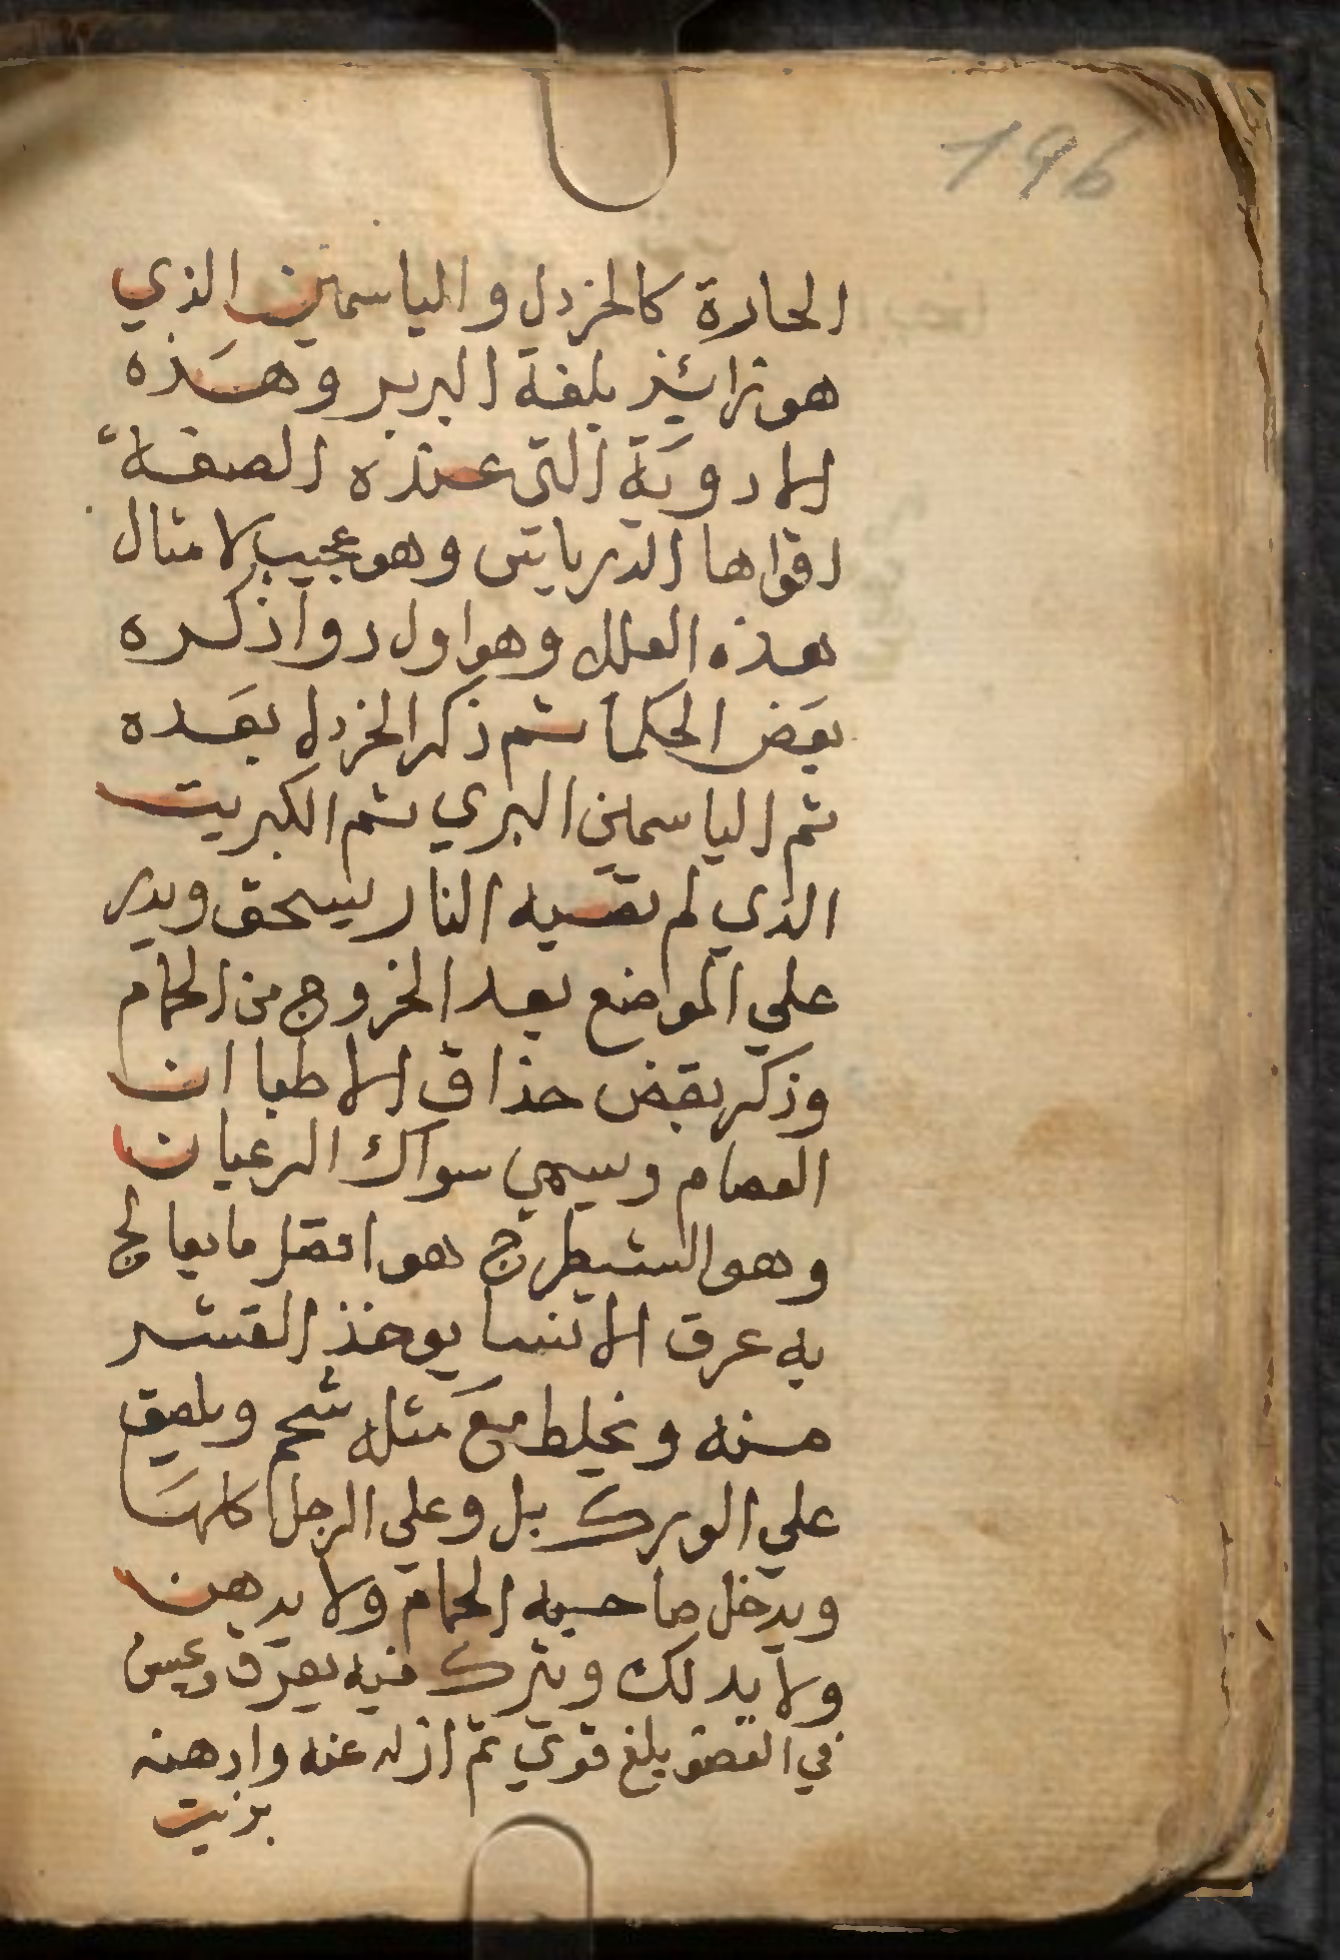 196
الحارة كالخردل والياسمين الذي
هو نرائيذ بلغة البربر وهذه
الادوية التي عنده الصفة
اقواها الدرياس وهو عجيب لامثال
هذه العلل وهو اول دوا ذكره
بعض الحكما ثم ذكر الخردل بعده
ثم الياسمين البري ثم الكبريت
الذي لم تمسه النار يسحق ويدر
علي المواضع بعد الخروج من الحمام
وذكر بعض حذاق الاطبا ان
العصام ويسمي سواك الرعيان
وهو الشيطرج هو افضل ما يعالج
به عرق الانسا يوخذ القشر
منه ويخلط مع مثله شحم ويلصق
علي الورك بل وعلي الرجل كلها
ويدخل صاحبه الحمام ولا يدهن
ولا يدلك ويترك فيه يعرق
في العضو بلغ قوي ثم ازله عنه وادهنه
بزيت